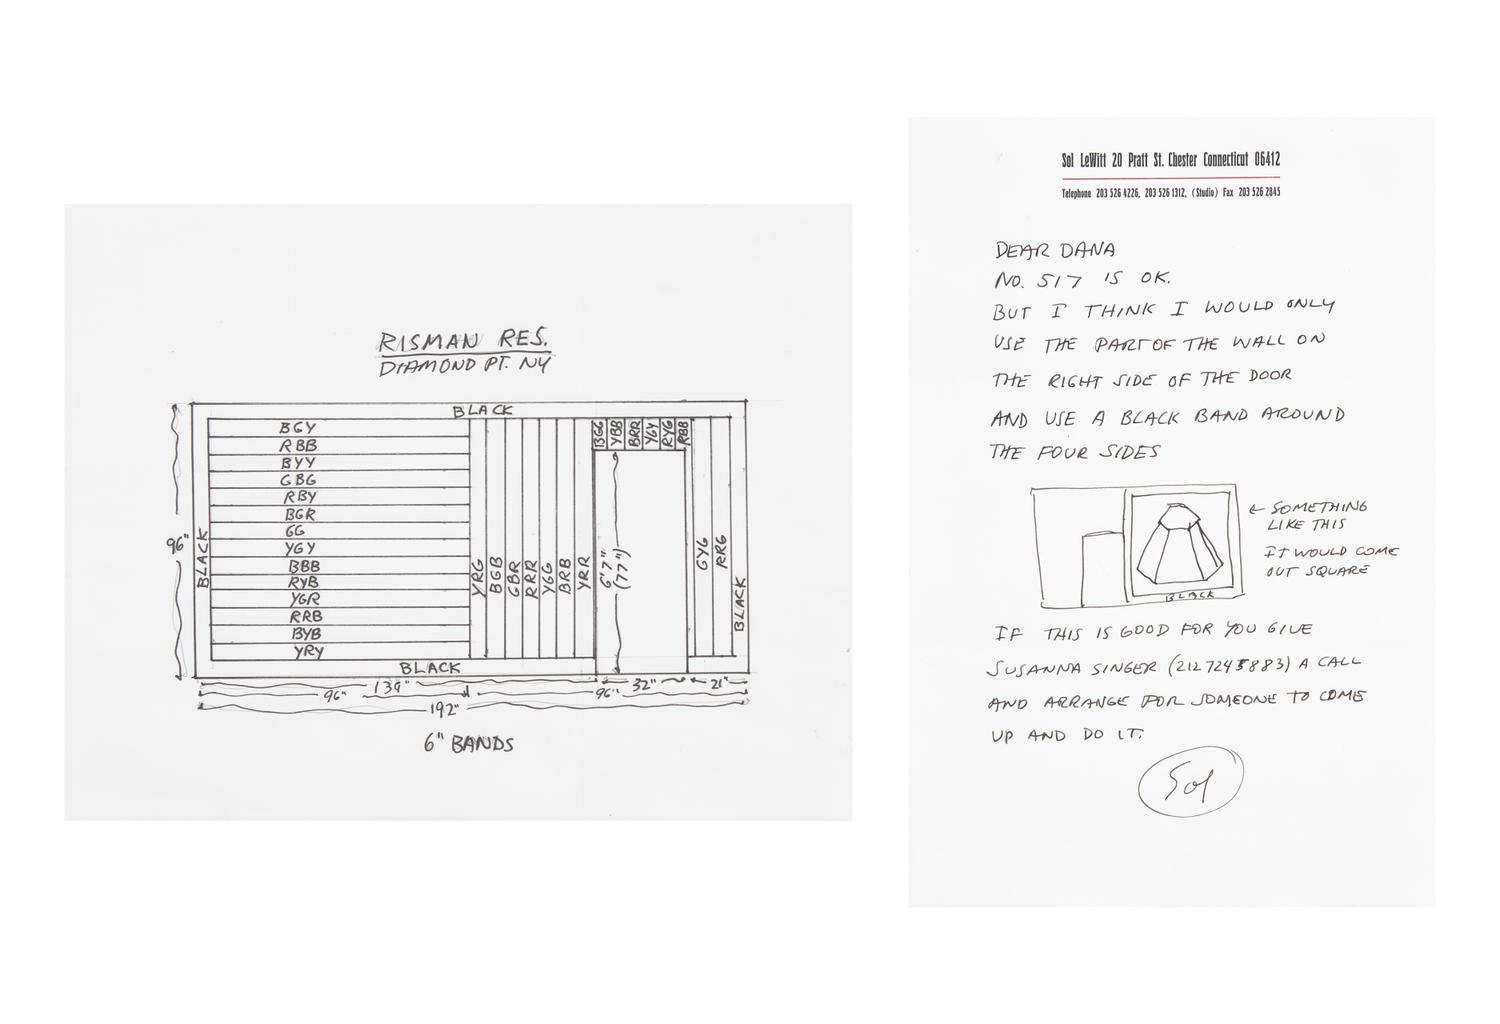 RISMAN RES.
DIAMOND PT. NY
BLACK
BGY
RBB
BYY
GBG
RBY
BGR
GG
YGY
BBB
RYB
YGR
RRB
BYB
YRY
BLACK
96"
YRG
BGB
GBR
RRR
YGG
BRB
YRR
BGG
YBB
BRR
YGY
RYG
RBB
6'7"
(77")
GYG
RRG
BLACK
BLACK
139"
32"
21"
96"
96"
192"
6" BANDS
Sol LeWitt 20 Pratt St. Chester Connecticut 06412
Telephone 203 526 4226, 203 526 1312, (Studio) Fax 203 526 2845
DEAR DANA
NO. 517 IS OK.
BUT I THINK I WOULD ONLY
USE THE PART OF THE WALL ON
THE RIGHT SIDE OF THE DOOR
AND USE A BLACK BAND AROUND
THE FOUR SIDES
← SOMETHING
LIKE THIS
IT WOULD COME
OUT SQUARE
BLACK
IF THIS IS GOOD FOR YOU GIVE
SUSANNA SINGER (212 724 5883) A CALL
AND ARRANGE FOR SOMEONE TO COME
UP AND DO IT.
Sol